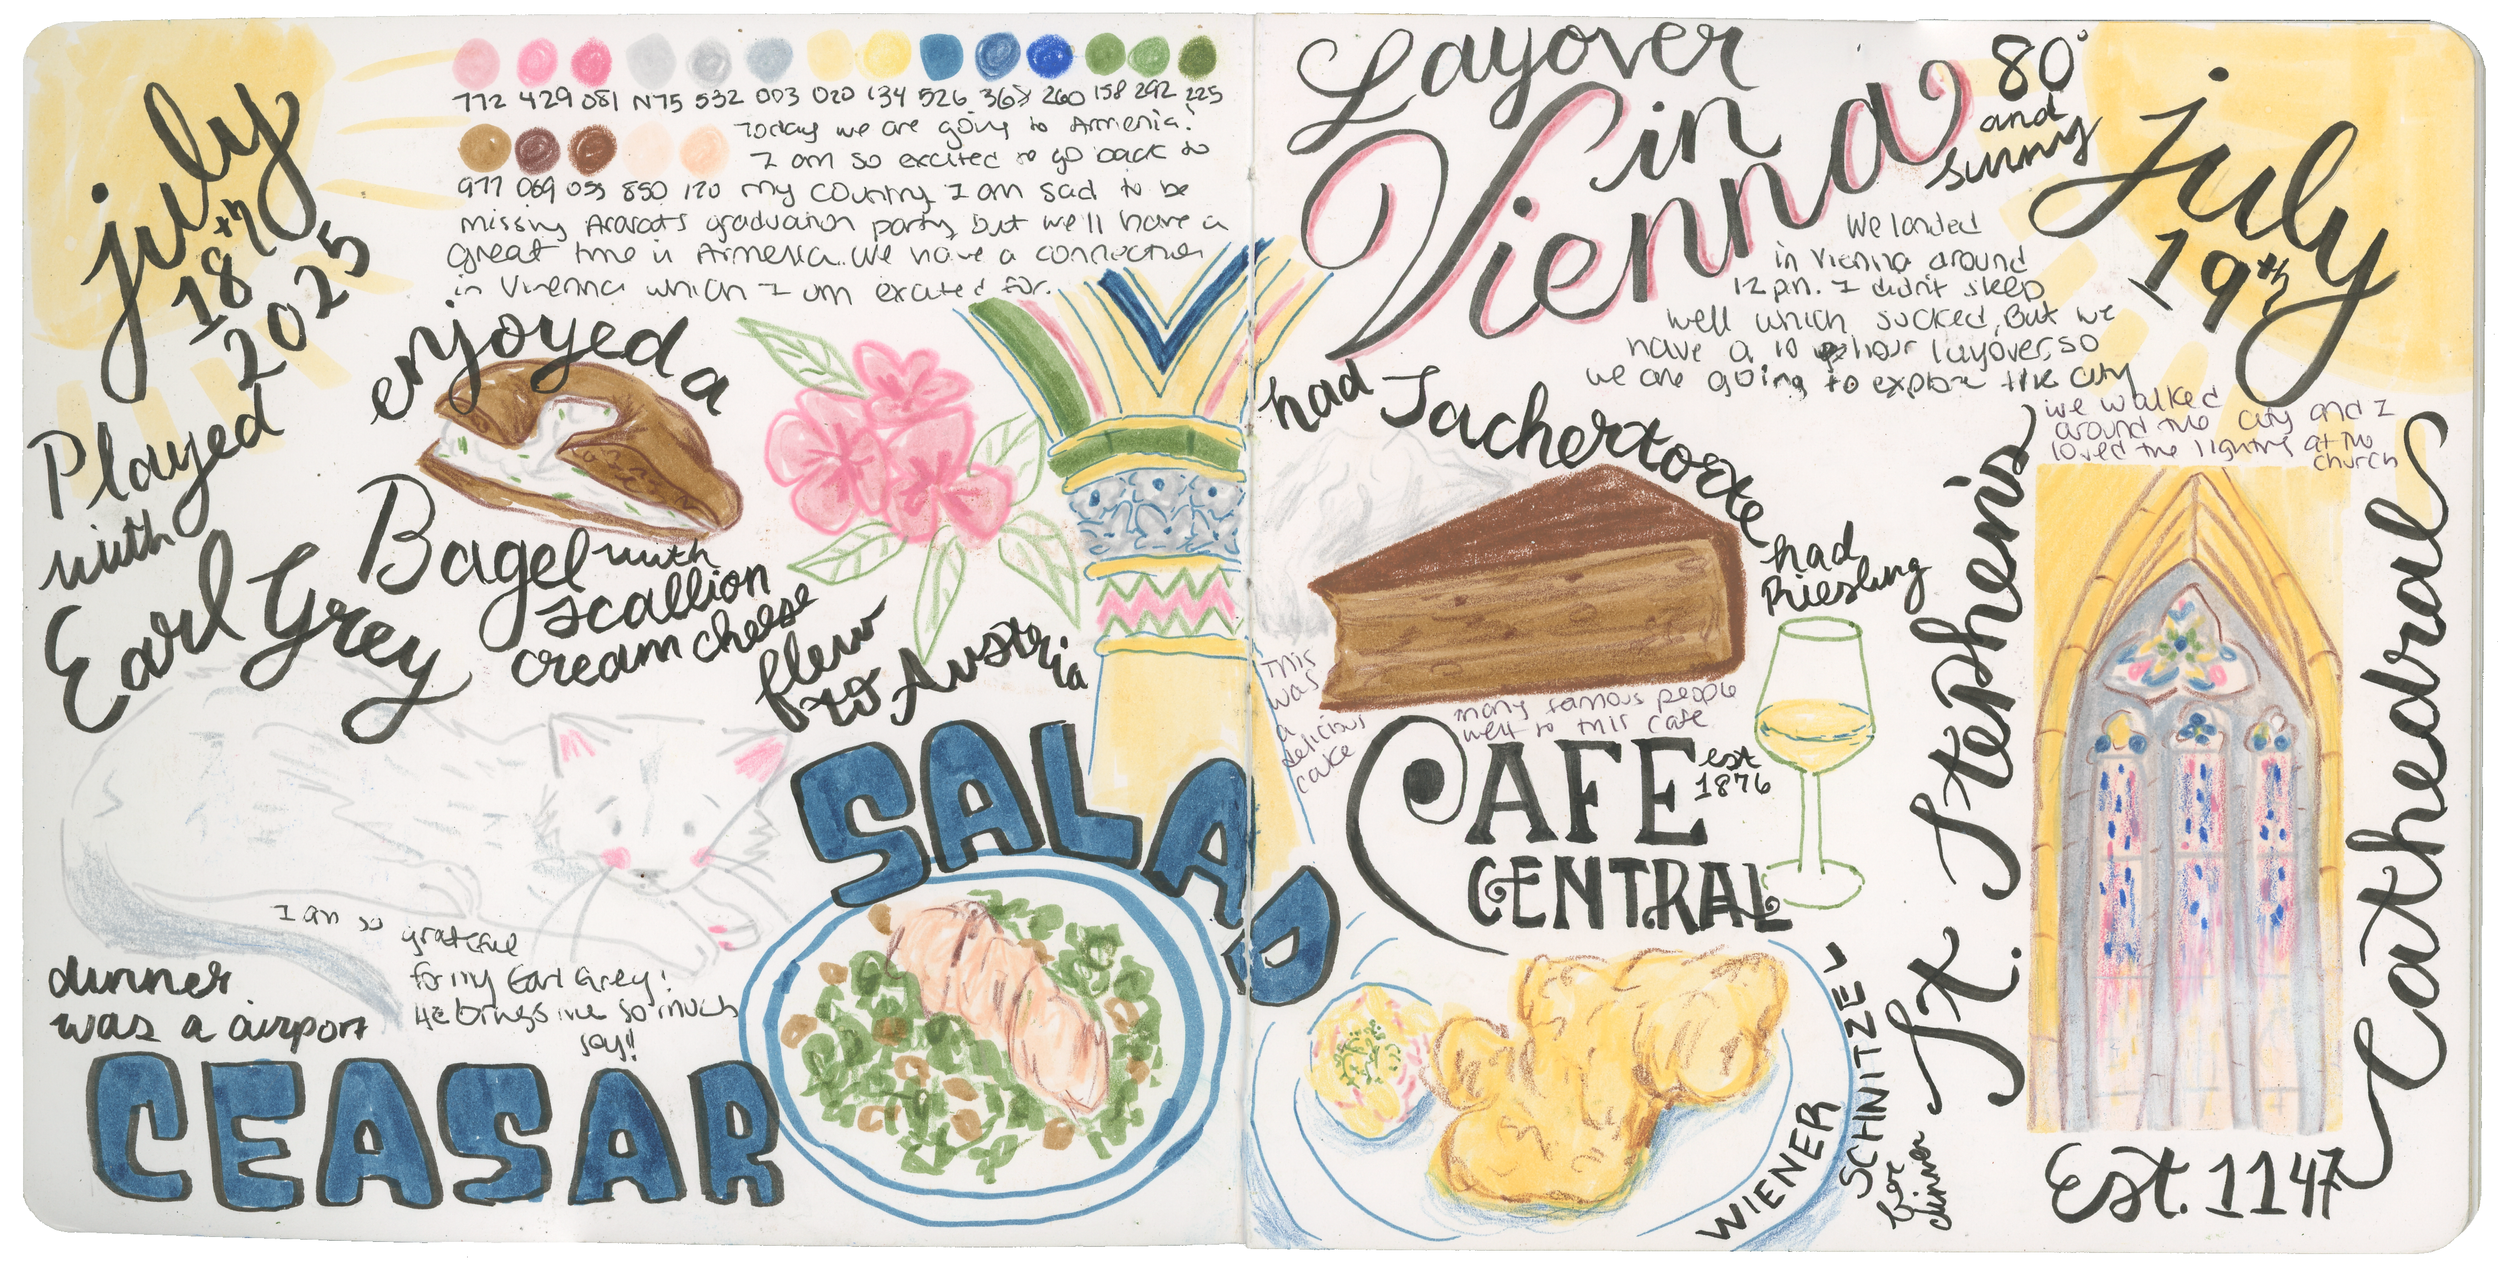 july
18th
2025
772 429 081 N75 532 003 020 134 526 368 260 158 292 225
977 069 055 850 170
Today we are going to Armenia!
I am so excited to go back to
my country I am sad to be
missing Ararat's graduation party, but we'll have a
great time in Armenia. We have a connection
in Vienna which I am excited for.
enjoyed a
Bagel with
scallion
cream cheese
Played
with
Earl Grey
flew
to Austria
I am so
grateful
for my Earl Grey!
He brings me so much
joy!!
dinner
was a airport
CEASAR
SALAD
Layover
in
Vienna
80°
and
sunny
july
19th
We landed
in Vienna around
12 pm. I didn't sleep
well which sucked, But we
have a 10 hour layover, so
we are going to explore the city
we walked
around the city and I
loved the lighting at the
church
had Sachertorte
This
was
a
delicious
cake
many famous people
went to this cafe
had
Riesling
CAFE
est
1876
CENTRAL
WIENER SCHNITZEL
for
dinner
St. Stephen's
Cathedral
Est. 1147